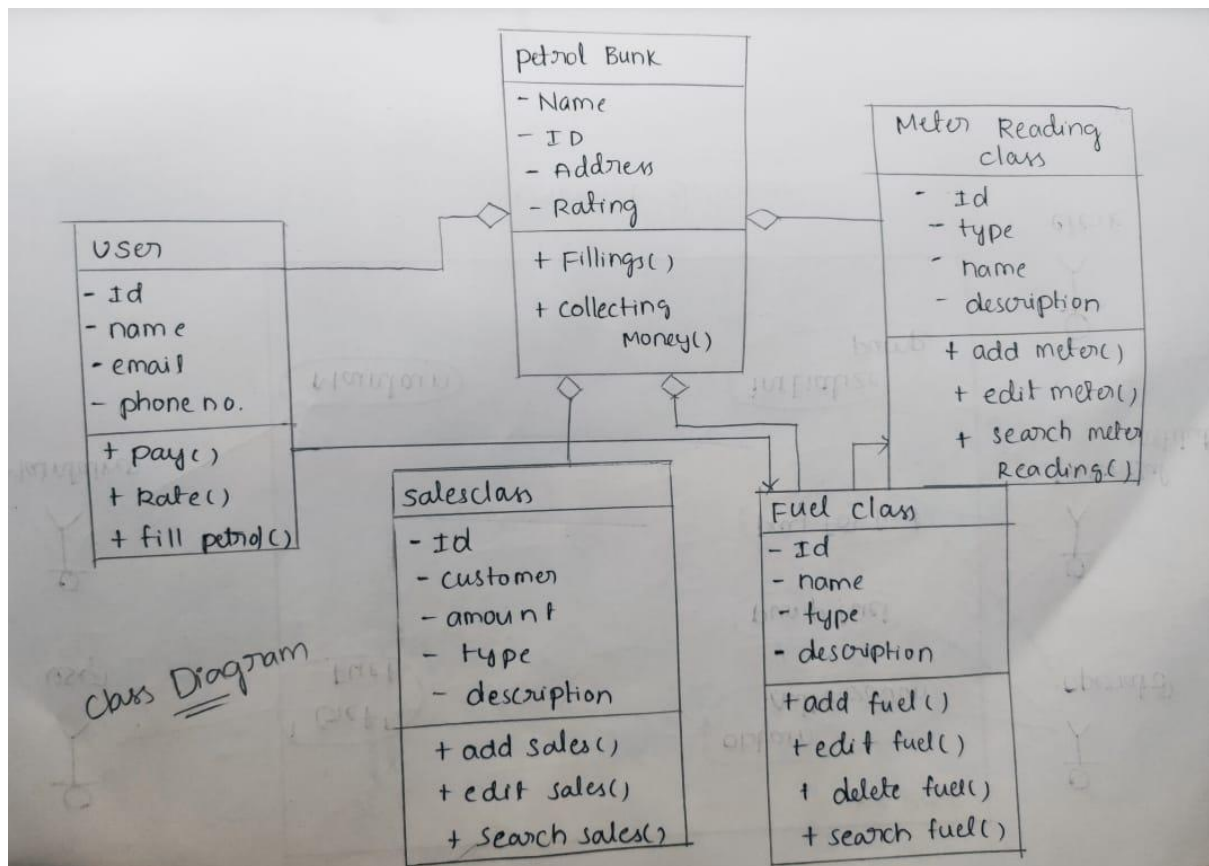 Petrol Bunk
- Name
- ID
- Address
- Rating
+ Fillings()
+ collecting
Money()
Meter Reading
class
- Id
- type
- name
- description
+ add meter()
+ edit meter()
+ search meter
Reading()
User
- Id
- name
- email
- phone no.
+ pay()
+ Rate()
+ fill petrol()
Salesclass
- Id
- customer
- amount
- type
- description
+ add sales()
+ edit sales()
+ search sales()
Fuel class
- Id
- name
- type
- description
+ add fuel()
+ edit fuel()
+ delete fuel()
+ search fuel()
class Diagram